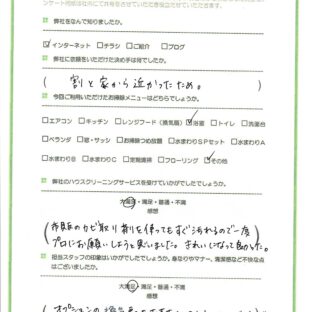 ンケート付紙は社外にて許可をさせていただき役立たせていただきます。
弊社をなんで知りましたか。
☑インターネット □チラシ □ご紹介 □ブログ
弊社に依頼をいただけた決め手は何でしたか。
( 割と家から近かったため。 )
今回ご利用いただけたお掃除メニューはどちらでしょうか。
□エアコン □キッチン □レンジフード(換気扇) ☑浴室 □トイレ □洗面台
□ベランダ □窓・サッシ □お掃除つめ放題 □水まわりSPセット □水まわりA
□水まわりB □水まわりC □定期清掃 □フローリング ☑その他
弊社のハウスクリーニングサービスを受けていかがでしたでしょうか。
大満足・満足・普通・不満
感想
(市販のカビ取り剤を使ってもすぐ汚れるので一度
プロにお願いしようと思いました。きれいになって良かった。)
担当スタッフの印象はいかがでしたでしょうか。身なりやマナー、清潔感など不快な点
はございましたか。
大満足・満足・普通・不満
感想
オプションの